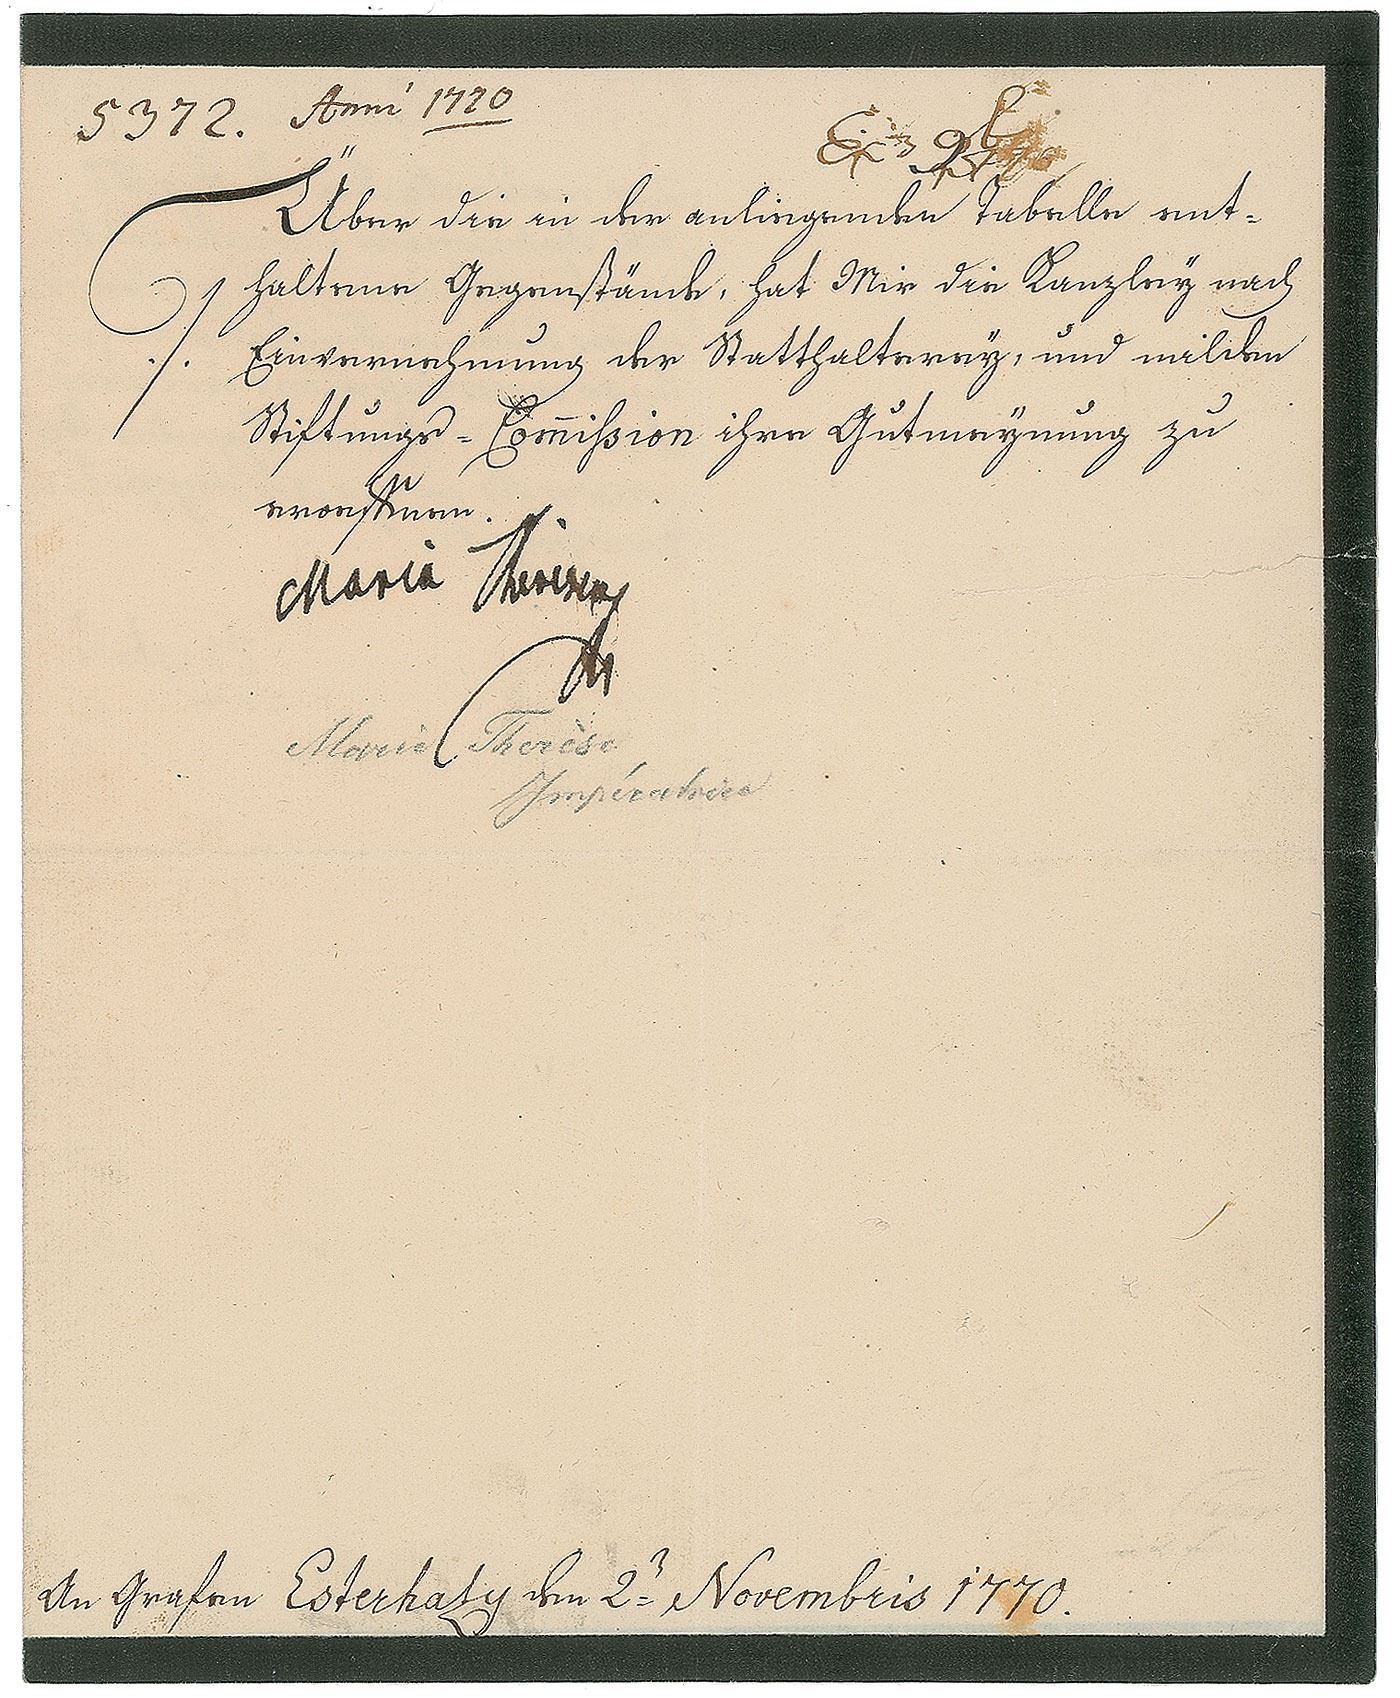 5372. Anni 1770
Über die in der anliegenden Tabelle ent=
haltene Gegenstände, hat Mir die Kanzleÿ nach
./. Einvernehmung der Statthaltereÿ, und milden
Stiftungs=Com̅ißion ihre Gutmeÿnung zu
eröffnen.
Maria Theresia
Marie Therèse
Impératrice
An Grafen Esterhasy den 2= Novembris 1770.